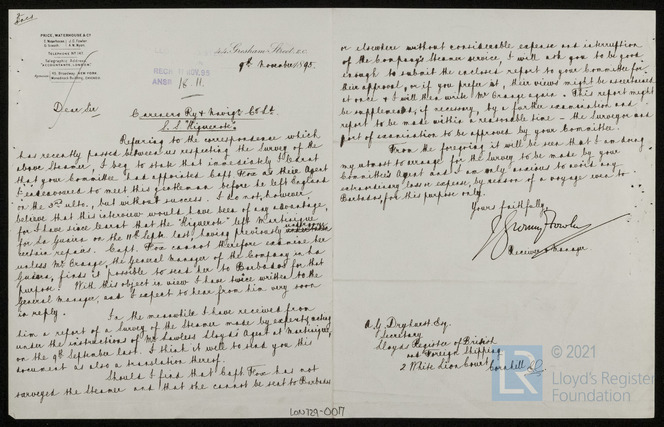 PRICE, WATERHOUSE & Co
44, Gresham Street, E.C.
9th November 1895.
Dear Sir
Carenero Ry & Navigtn Co Ld
S.S "Higuerote"
Referring to the correspondence which
has recently passed between us respecting the Survey of the
above Steamer, I beg to state that immediately I learnt
that your Committee had appointed Capt. Fox as their Agent
I endeavoured to meet this gentleman before he left England
on the 3rd ulto., but without success. I do not, however
believe that this interview would have been of any advantage,
for I have since learnt that the "Higuerote" left Martinique
for La Guaira on the 14 Septr last, having previously undergone
certain repairs. Capt. Fox cannot therefore examine her
unless Mr Crange, the General Manager of the Company in La
Guaira, finds it possible to send her to Barbados for that
purpose. With this object in view I have twice written to the
General Manager, and I expect to hear from him very soon
in reply.
In the meanwhile I have received from
him a report of a Survey of the Steamer made by experts, acting
under the instructions of Mr Lawless Lloyd's Agent at Martinique,
on the 9th September last. I think it well to send you this
document as also a translation thereof.
Should I find that Capt. Fox has not
surveyed the Steamer and that she cannot be sent to Barbados
or elsewhere without considerable expense and interruption
of the Company's Steamer service, I will ask you to be good
enough to submit the enclosed report to your Committee for
their approval, or if you prefer it, their views might be ascertained
at once & I will then write Mr Crange again. This report might
be supplemented, if necessary, by a further examination and
report to be made within a reasonable time - the Surveyor and
port of examination to be approved by your Committee.
From the foregoing it will be seen that I am doing
my utmost to arrange for the Survey to be made by your
Committee's Agent and I am only anxious to avoid any
extraordinary loss or expense, by reason of a voyage even to
Barbados for this purpose only.
Yours faithfully,
Receiver & Manager.
A. G. Dryhurst Esq.
Secretary
Lloyds Register of British
and Foreign Shipping
2 White Lion Court Cornhill EC
LON729-0017
LR
© 2021
Lloyd's Register
Foundation